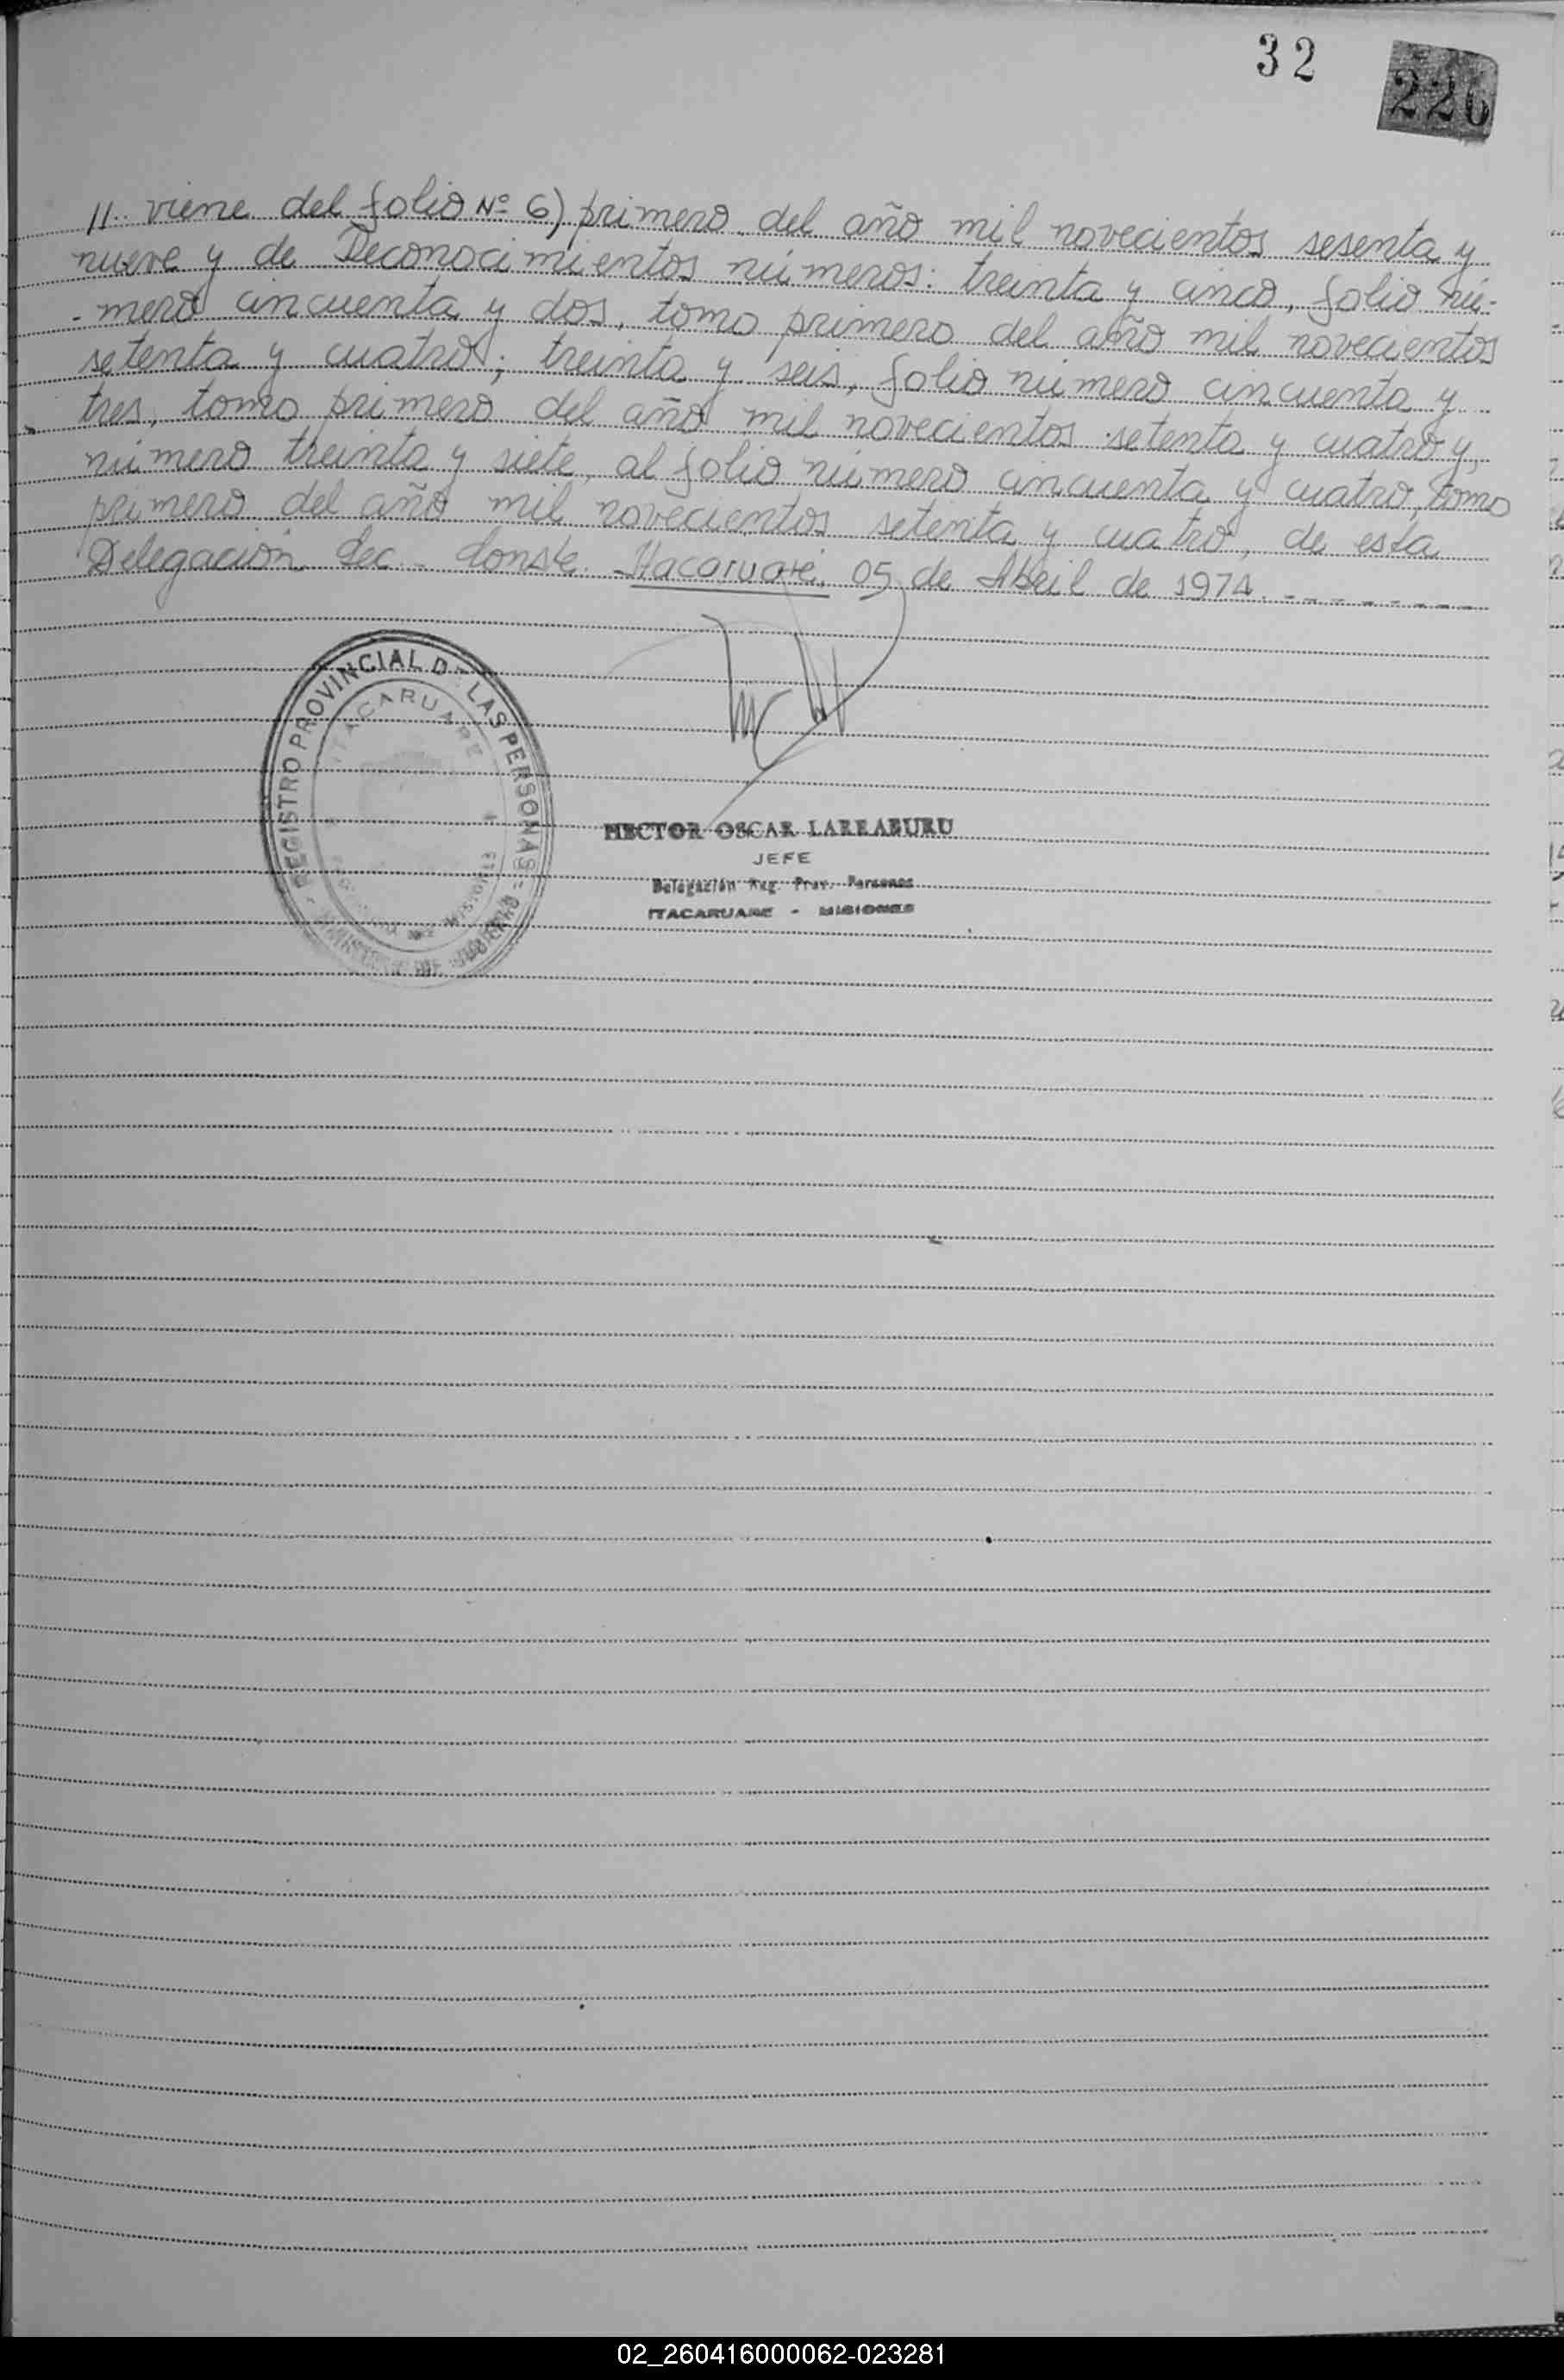 32
226
11.. viene del folio Nº 6) primero del año mil novecientos sesenta y
nueve y de Reconocimientos números: treinta y cinco, folio nú-
-mero cincuenta y dos, tomo primero del año mil novecientos
setenta y cuatro; treinta y seis, folio número cincuenta y
tres, tomo primero del año mil novecientos setenta y cuatro y,
número treinta y siete, al folio número cincuenta y cuatro, tomo
primero del año mil novecientos setenta y cuatro, de esta
Delegación Sec.- Conste. Itacaruaré, 05 de Abril de 1974.--------
REGISTRO PROVINCIAL DE LAS PERSONAS
ITACARUARE
MISIONES
HECTOR OSCAR LARRABURU
JEFE
Delegación Reg. Prov. Personas
ITACARUARE - MISIONES
02_260416000062-023281